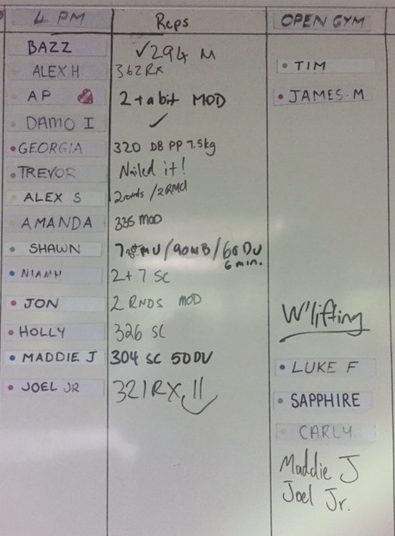 4 PM Reps OPEN GYM
BAZZ ✓294 M
ALEX H 362 RX
TIM
AP 2+a bit MOD
JAMES-M
DAMO I ✓
GEORGIA 320 DB PP 7.5kg
TREVOR Nailed it!
ALEX S 2rnds /2RMU
AMANDA 335 MOD
SHAWN MU/90WB/60 DU
6 min.
NIAMH 2+7 SC
JON 2 RNDS MOD
W'lifting
HOLLY 326 SC
MADDIE J 304 SC 50DU
LUKE F
JOEL JR 321RX
SAPPHIRE
CARLY
Maddie J
Joel Jr.